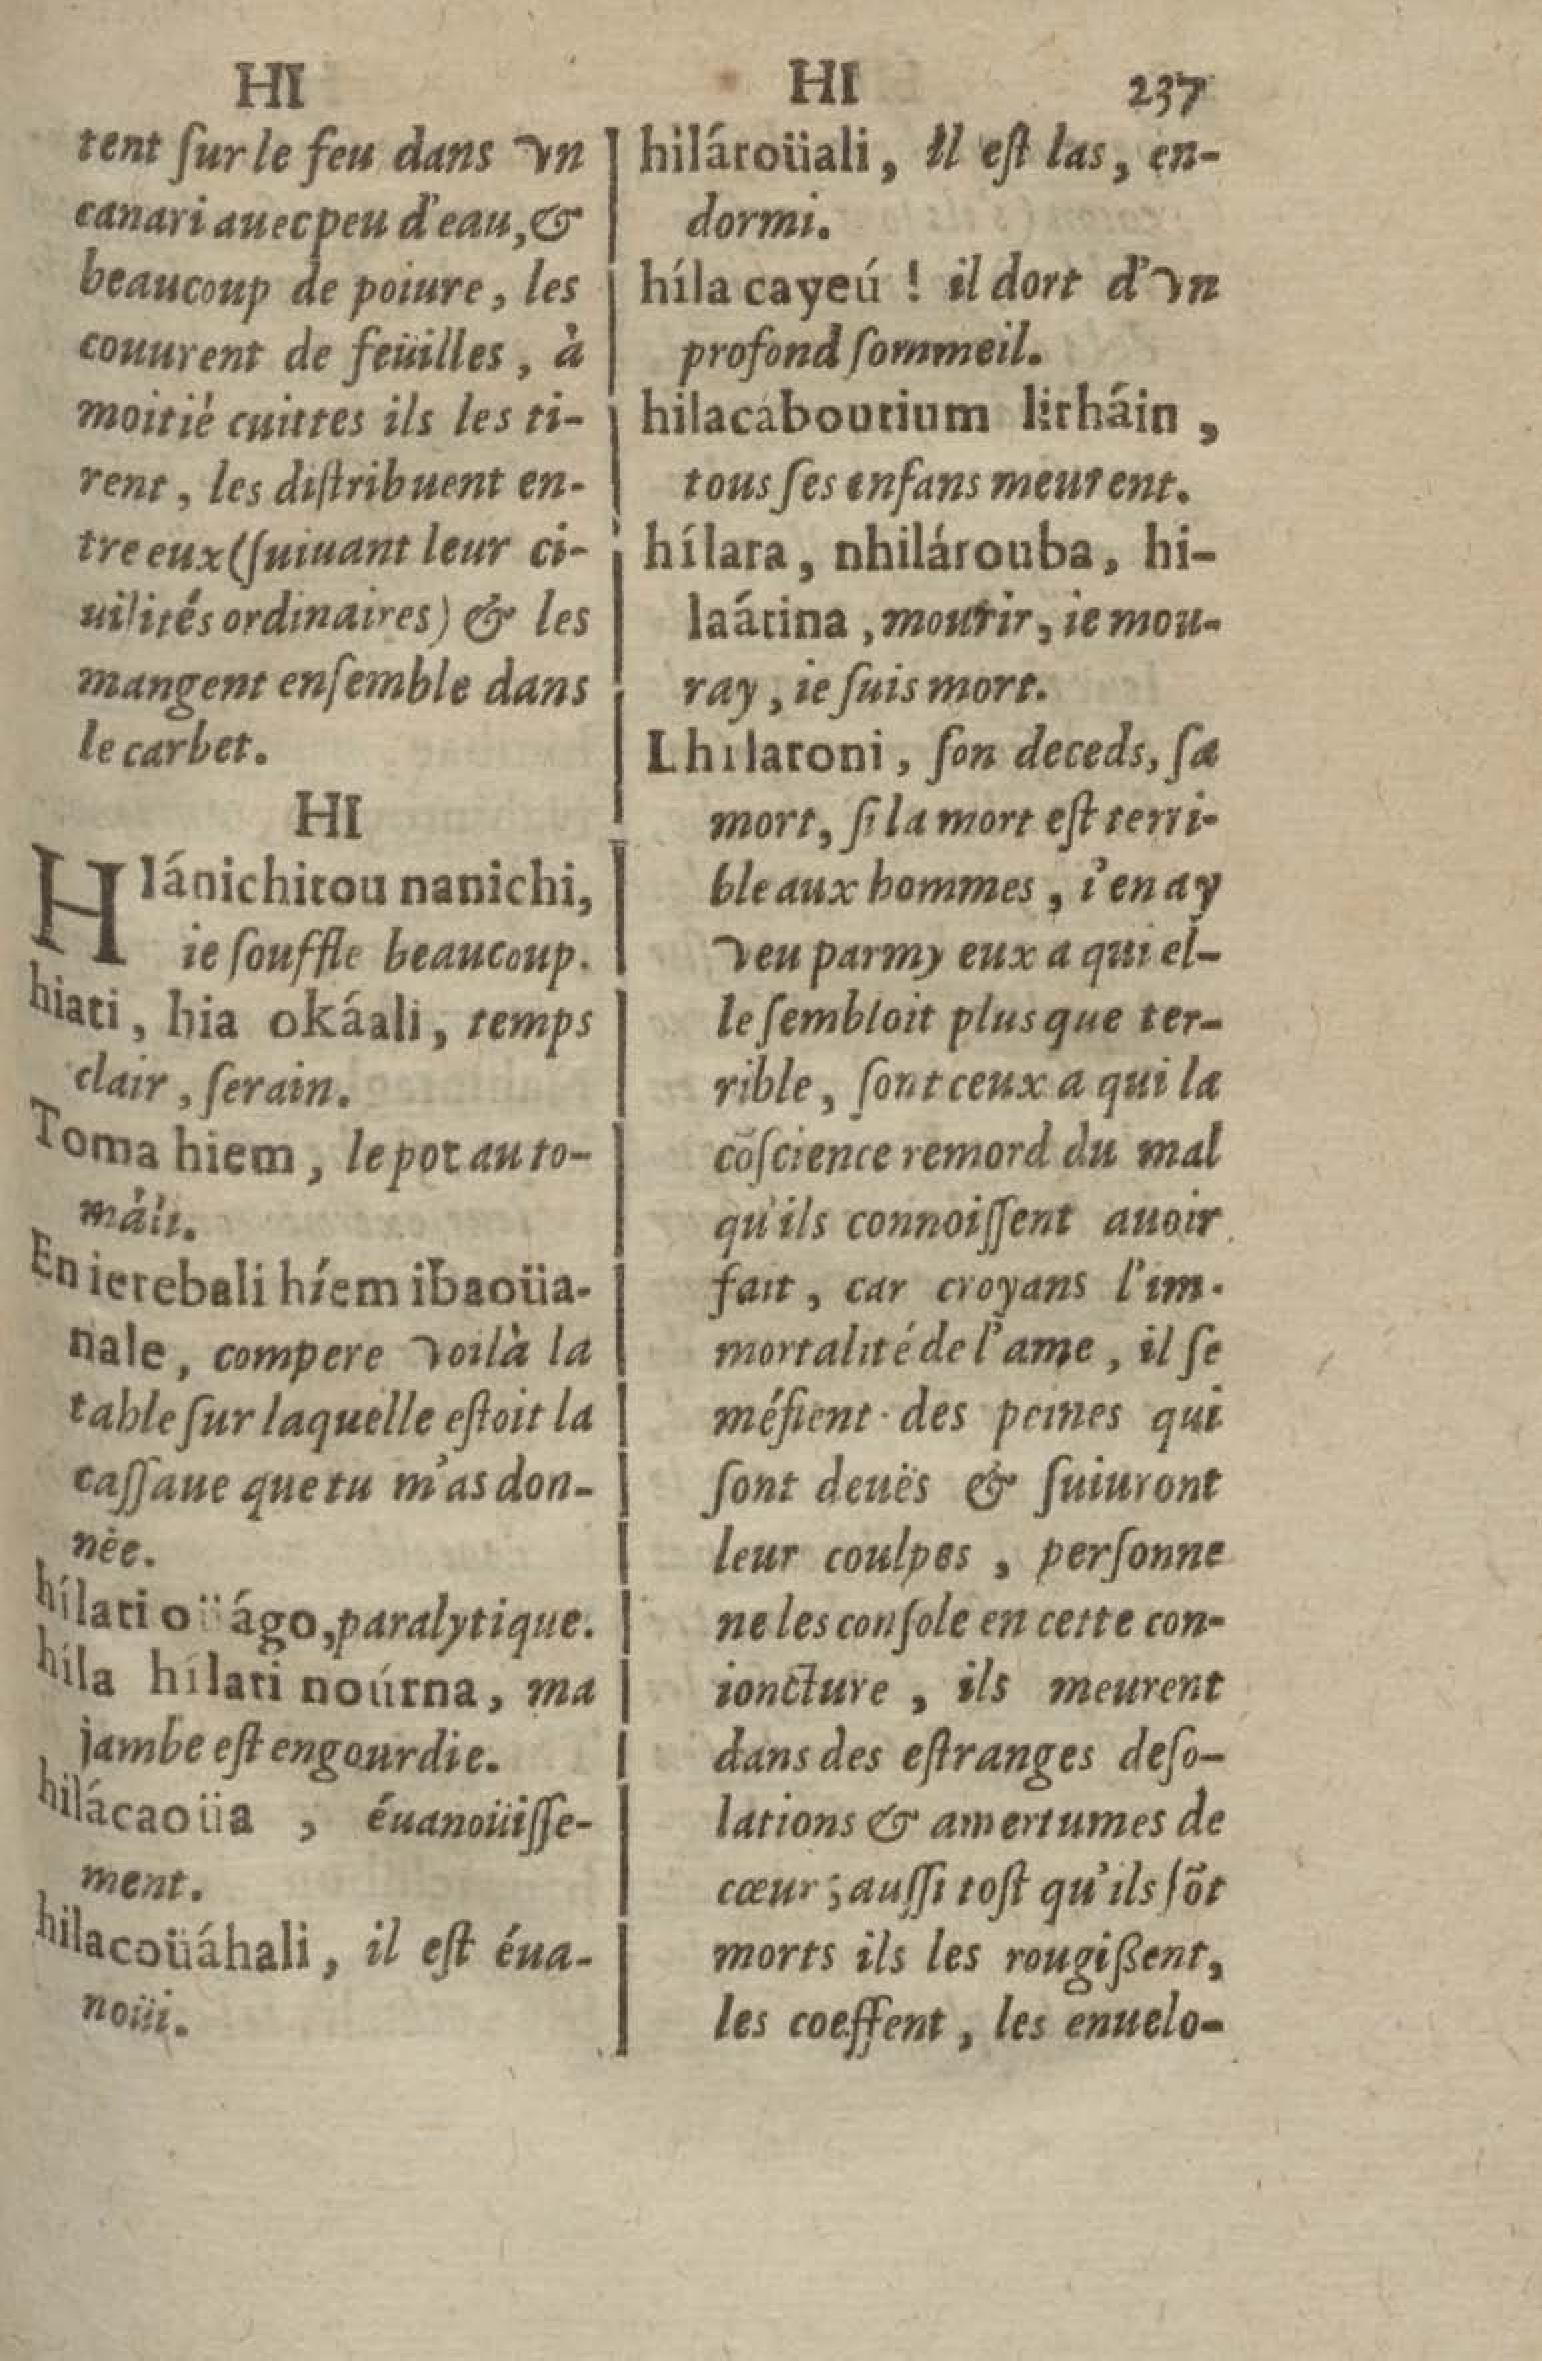 HI
tent ſur le feu dans vn
canari auec peu d'eau, &
beaucoup de poiure, les
couurent de feüilles, à
moitiè cuittes ils les ti-
rent, les diſtribuent en-
tre eux (ſuiuant leur ci-
uilités ordinaires) & les
mangent enſemble dans
le carbet.
HI
HIánichitou nanichi,
ie ſouffle beaucoup.
hiati, hia okáali, temps
clair, ſerain.
Toma hiem, le pot au to-
màli.
En ierebali híem ibaoüa-
nale, compere voilà la
table ſur laquelle eſtoit la
caſſaue que tu m'as don-
nèe.
hílati oüágo, paralytique.
híla hílati noúrna, ma
jambe eſt engourdie.
hilácaoüa, éuanoüiſſe-
ment.
hilacoüáhali, il eſt éua-
noüi.
HI 237
hilároüali, Il eſt las, en-
dormi.
híla cayeú ! il dort d'vn
profond ſommeil.
hilacábourium litháin,
tous ſes enfans meurent.
hílara, nhilárouba, hi-
laátina, mourir, ie mou-
ray, ie ſuis mort.
Lhilaroni, ſon deceds, ſa
mort, ſi la mort eſt terri-
ble aux hommes, i'en ay
veu parmy eux a qui el-
le ſembloit plus que ter-
rible, ſont ceux a qui la
cõſcience remord du mal
qu'ils connoiſſent auoir
fait, car croyans l'im-
mortalité de l'ame, il ſe
méfient des peines qui
ſont deuës & ſuiuront
leur coulpes, perſonne
ne les conſole en cette con-
ioncture, ils meurent
dans des eſtranges deſo-
lations & amertumes de
cœur; auſſi toſt qu'ils ſõt
morts ils les rougißent,
les coeffent, les enuelo-